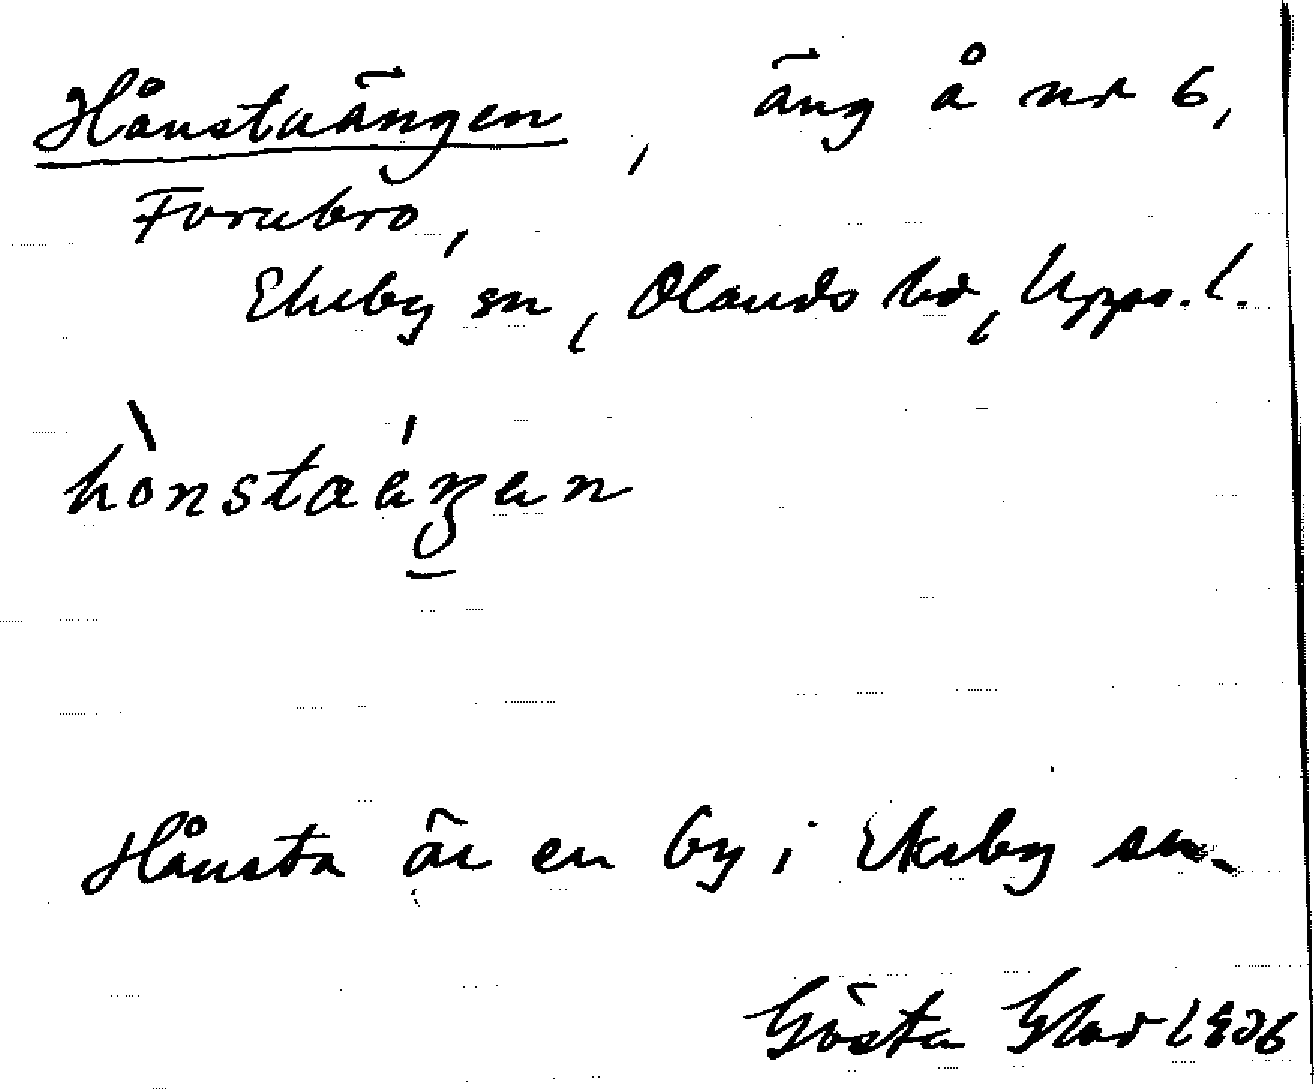 Hånstaängen, äng å nr 6,
Forubro,
Ekeby sn, Olands hd, Upps. l.
hònstaáŋen
Hånsta är en by i Ekeby sn.
Gösta 1936